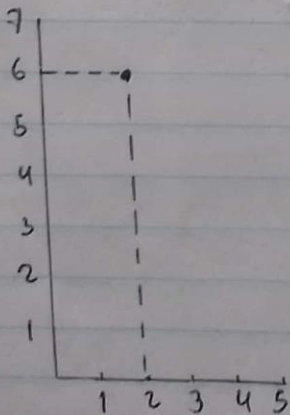 7
6
5
4
3
2
1
1 2 3 4 5